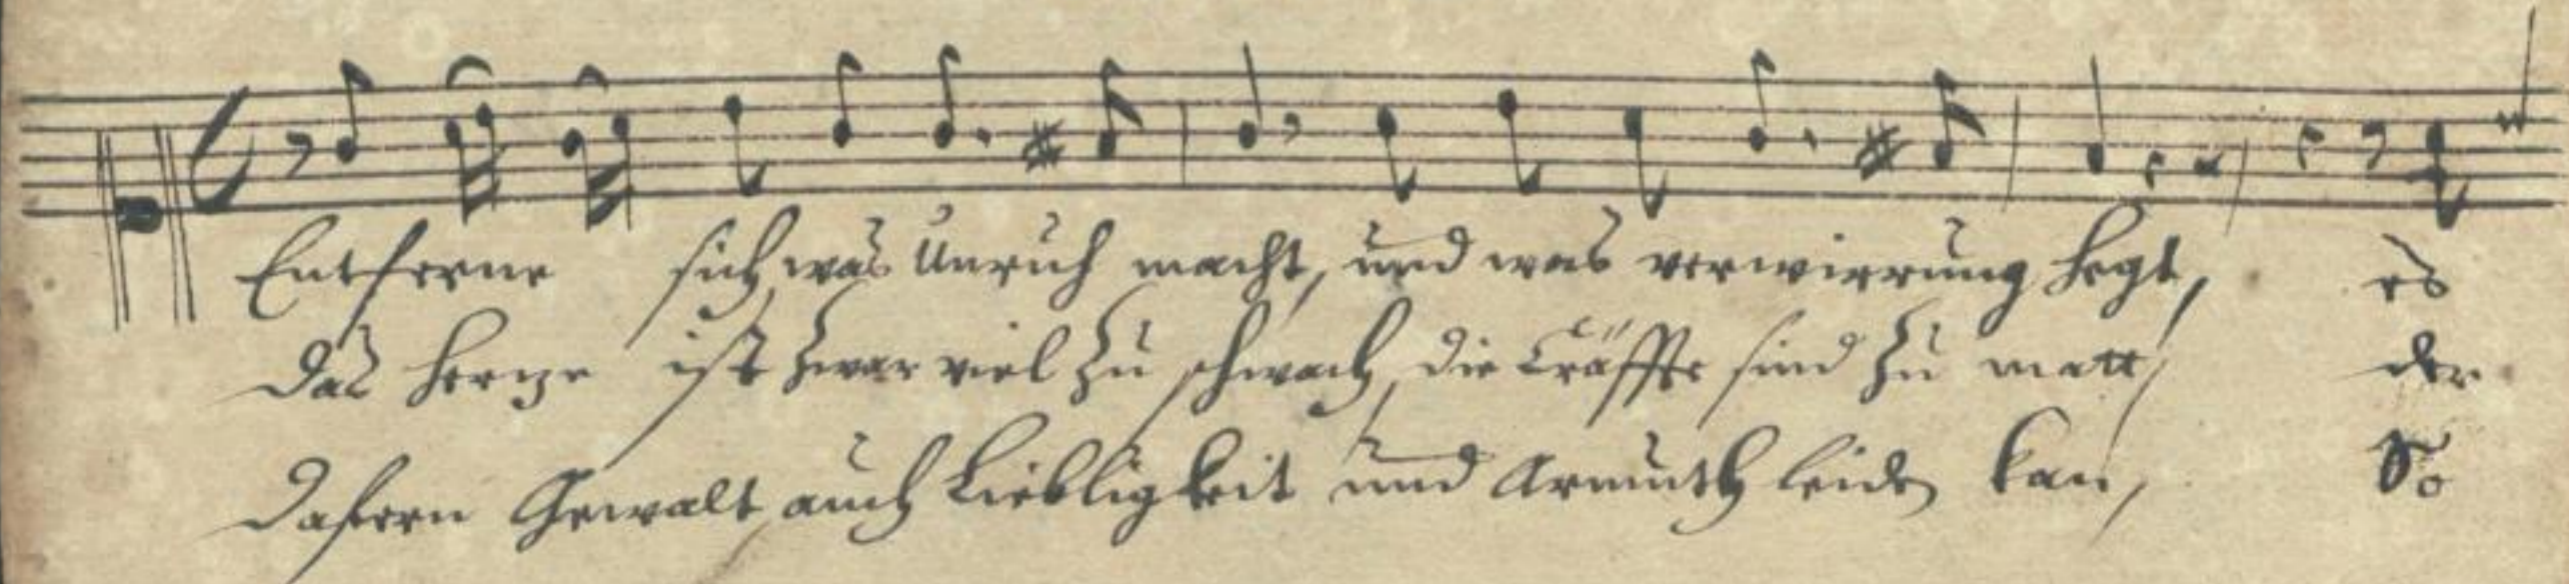 Entferne sich, was Unruh macht, und was verwirrung hegt, es
das Hertze ist zwar viel zu schwach, die Cräffte sind zu matt, der
dafern Gewalt auch Liebligkeit und Armuth leiden kan, So